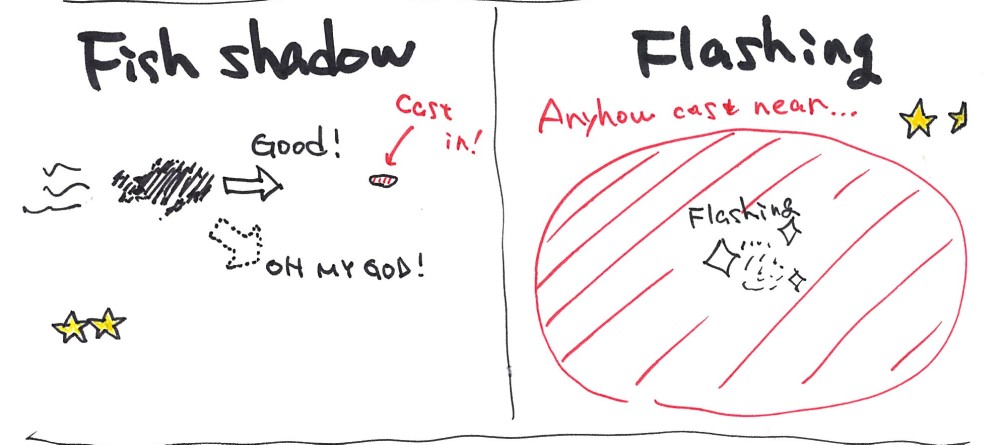 Fish shadow
Cast
in!
Good!
OH MY GOD!
Flashing
Anyhow cast near...
Flashing